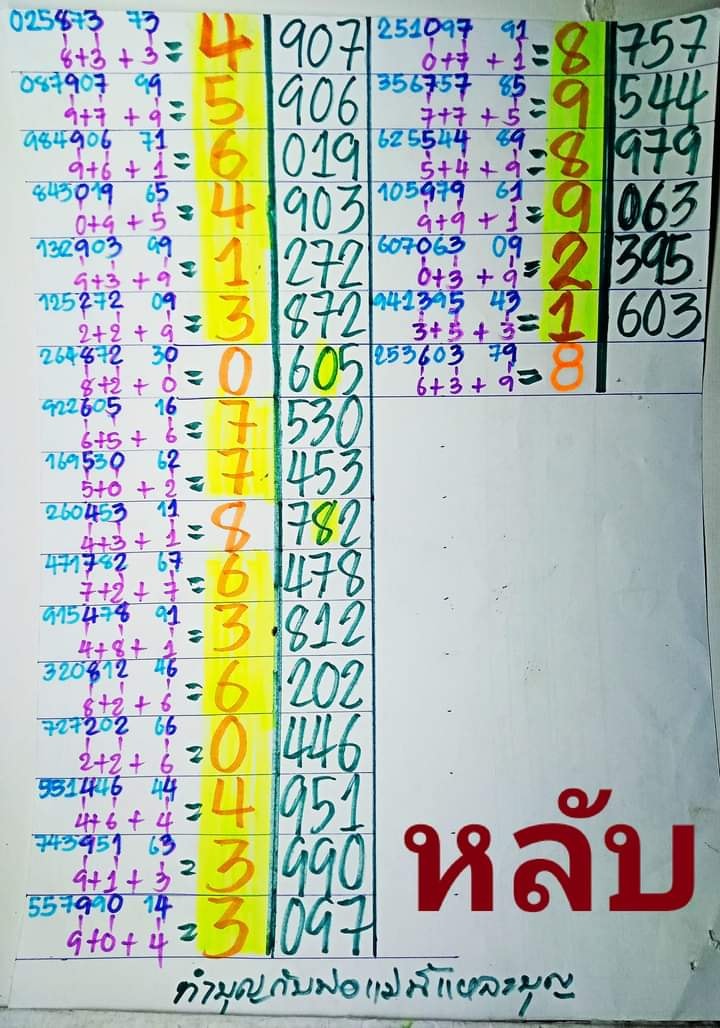 025873 73
8+3 + 3 = 4 907
087907 99
9+7 + 9 = 5 906
984906 71
9+6 + 1 = 6 019
843019 65
0+9 + 5 = 4 903
132903 99
9+3 + 9 = 1 272
125272 09
2+2 + 9 = 3 872
264872 30
8+2 + 0 = 0 605
922605 16
6+5 + 6 = 7 530
169530 62
5+0 + 2 = 7 453
260453 11
4+3 + 1 = 8 782
471782 67
7+2 + 7 = 6 478
915478 91
4+8 + 1 = 3 812
320812 46
8+2 + 6 = 6 202
727202 66
2+2 + 6 = 0 446
531446 44
4+6 + 4 = 4 951
743951 63
9+1 + 3 = 3 990
557990 14
9+0 + 4 = 3 097
251097 91
0+7 + 1 = 8 757
356757 85
7+7 + 5 = 9 544
625544 89
5+4 + 9 = 8 979
105979 61
9+9 + 1 = 9 063
607063 09
0+3 + 9 = 2 395
941395 43
3+5 + 3 = 1 603
253603 79
6+3 + 9 = 8
หลับ
ทำบุญกับพ่อแม่นี่แหละบุญ